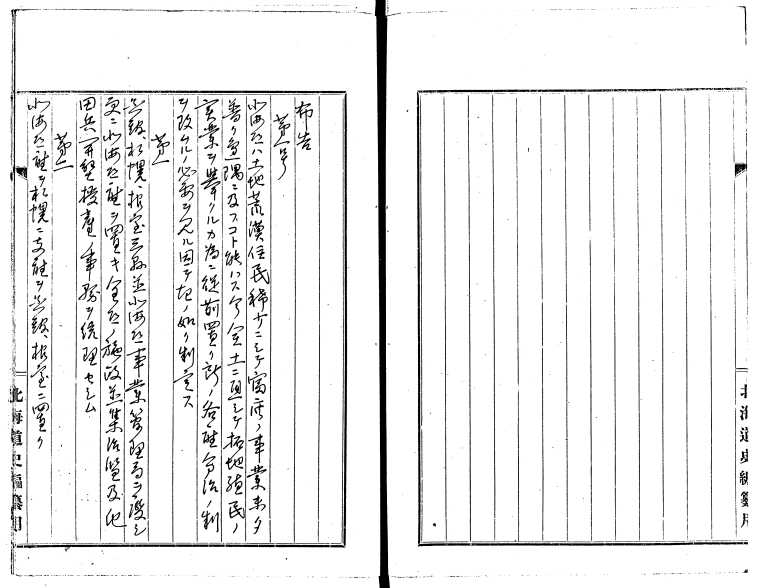 布告
第一号
北海道ハ土地荒漠住民稀少ニシテ富庶ノ事業未タ
普ク辺隅ニ及フコト能ハス今全土ニ通シテ拓地殖民ノ
実業ヲ挙クルカ為ニ従前置ク所ノ各庁分治ノ制
ヲ改ムルノ必要ヲ見ル因テ左ノ如ク制定ス
第一
函館、札幌、根室三県並北海道事業管理局ヲ廃シ
更ニ北海道庁ヲ置キ全道ノ施政並集治監及屯
田兵開墾授産ノ事務ヲ統理セシム
第二
北海道庁ヲ札幌ニ支庁ヲ函館、根室ニ置ク
北海道史編纂用
北海道史編纂用